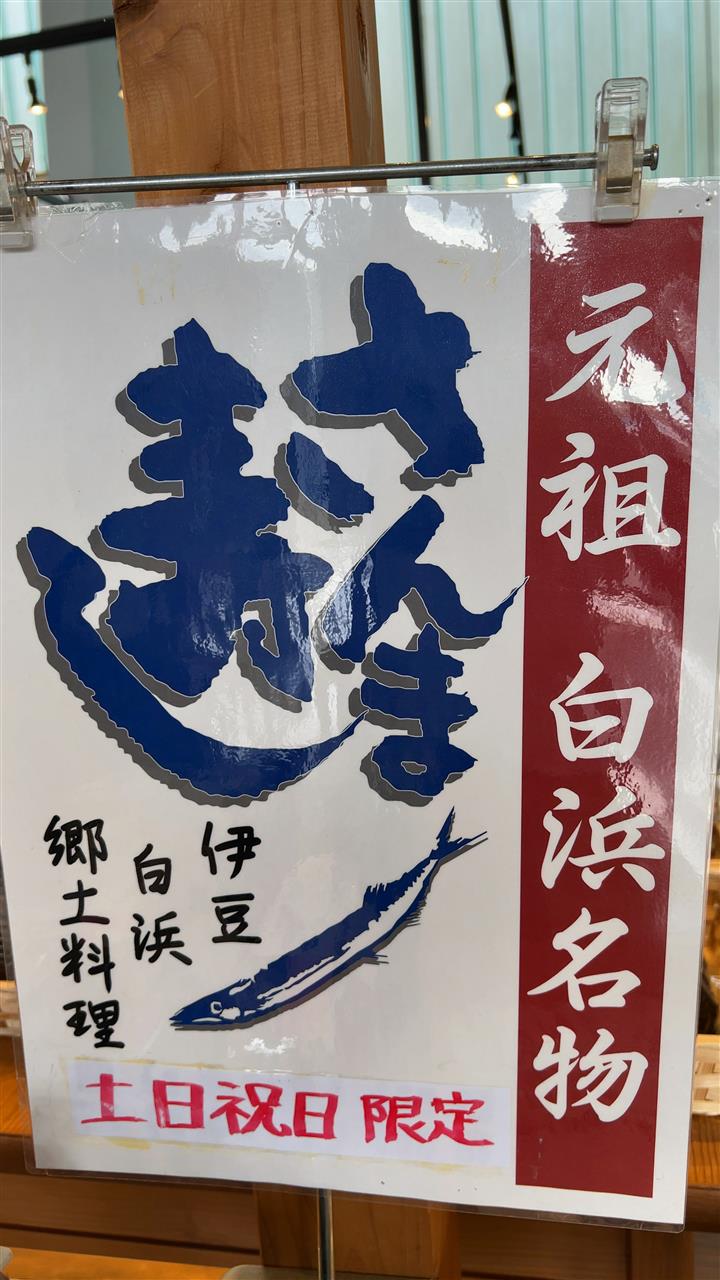 元祖 白浜名物
さんま
寿し
伊豆
白浜
郷土料理
土日祝日 限定